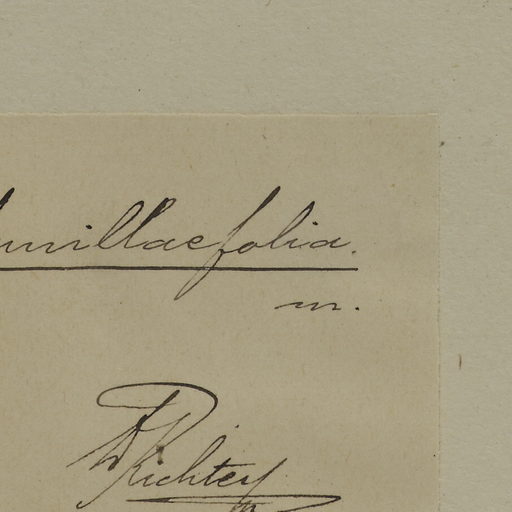 millaefolia.
m.
Richter